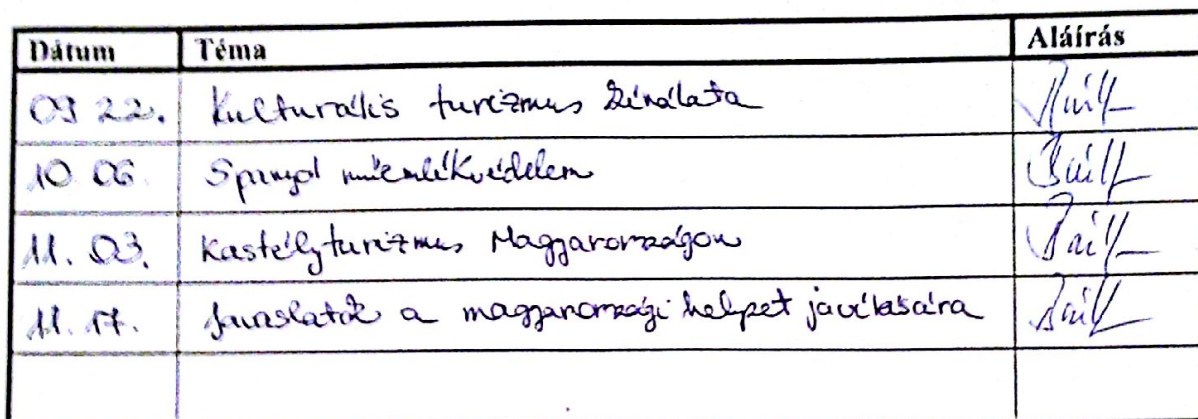 Dátum Téma Aláírás
09 22. Kulturális turizmus kínálata
10 06. Spanyol műemlékvédelem
11. 03. Kastélyturizmus Magyarországon
11. 17. Javaslatok a magyarországi helyzet javítására